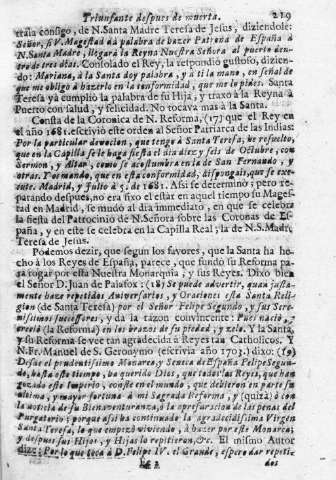 Triunfante despues de muerta. 219
traìa consigo, de N. Santa Madre Teresa de Jesus, diziendole:
Señor, si V. Magestad dà palabra de hazer Patrona de España à
N. Santa Madre, llegarà la Reyna Nuestra Señora al puerto dentro
de tres dias. Consolado el Rey, la respondiò gustoso, diziendo:
Mariana, à la Santa doy palabra, y à ti la mano, en señal de
que me obligo à hazerlo en la conformidad, que me lo pides. Santa
Teresa yà cumpliò la palabra de su Hija, y traxo à la Reyna à
Puerto con salud, y felicidad. No tocava mas à la Santa.
Consta de la Coronica de N. Reforma, (17) que el Rey en
el año 1681. escriviò este orden al Señor Patriarca de las Indias:
Por la particular devocion, que tengo à Santa Teresa, he resuelto,
que en la Capilla se le haga fiesta al dia diez y seis de Octubre, con
Sermon, y Altar, como se acostumbra en la de San Fernando, y
otras. Tomando, que en esta conformidad, dispongais, que se execute.
Madrid, y Julio à 5. de 1681. Assi se determinò; pero reparando
despues, no era fixo el estar en aquel tiempo su Magestad
en Madrid, se mudò al dia immediato, en que se celebra
la fiesta del Patrocinio de N. Señora sobre las Coronas de España,
y en este se celebra en la Capilla Real; la de N. S. Madre
Teresa de Jesus.
Podemos dezir, que segun los favores, que la Santa ha hecho
à los Reyes de España, parece, que fundò su Reforma para
rogar por esta Nuestra Monarquia, y sus Reyes. Dixo bien
el Señor D. Juan de Palafox: (18) Se puede advertir, quan justamente
haze repetidos Aniversarios, y Oraciones esta Santa Religion
(de Santa Teresa) por el Señor Felipe Segundo, y sus Serenissimos
sucessores; y dà la razon convincente: Pues naciò, y
creciò (la Reforma) en los brazos de su piedad, y zelo. Y la Santa,
y su Reforma se vee tan agradecida à Reyes tan Catholicos. Y
N. Fr. Manuel de S. Geronymo (escrivia año 1703.) dixo: (19)
Desde el prudentissimo Monarca, y Seneca de España Felipe Segundo,
hasta este tiempo, ha querido Dios, que todos los Reyes, que han
gozado este Imperio, conste en el mundo, que debieron en parte su
ultima, y mayor fortuna à mi Sagrada Reforma, y (quizà) ò con
la noticia de su Bienaventurança, ò la apresuracion de las penas del
Purgatorio; porque assi ha continuado la agradecidissima Virgen
Santa Teresa, lo que empezò viviendo, à hazer por este Monarca;
y despues sus Hijos, y Hijas lo repitieron, &c. El mismo Autor
dize: Por lo que toca à D. Felipe IV. el Grande, espero dar repetidos
Ee 2